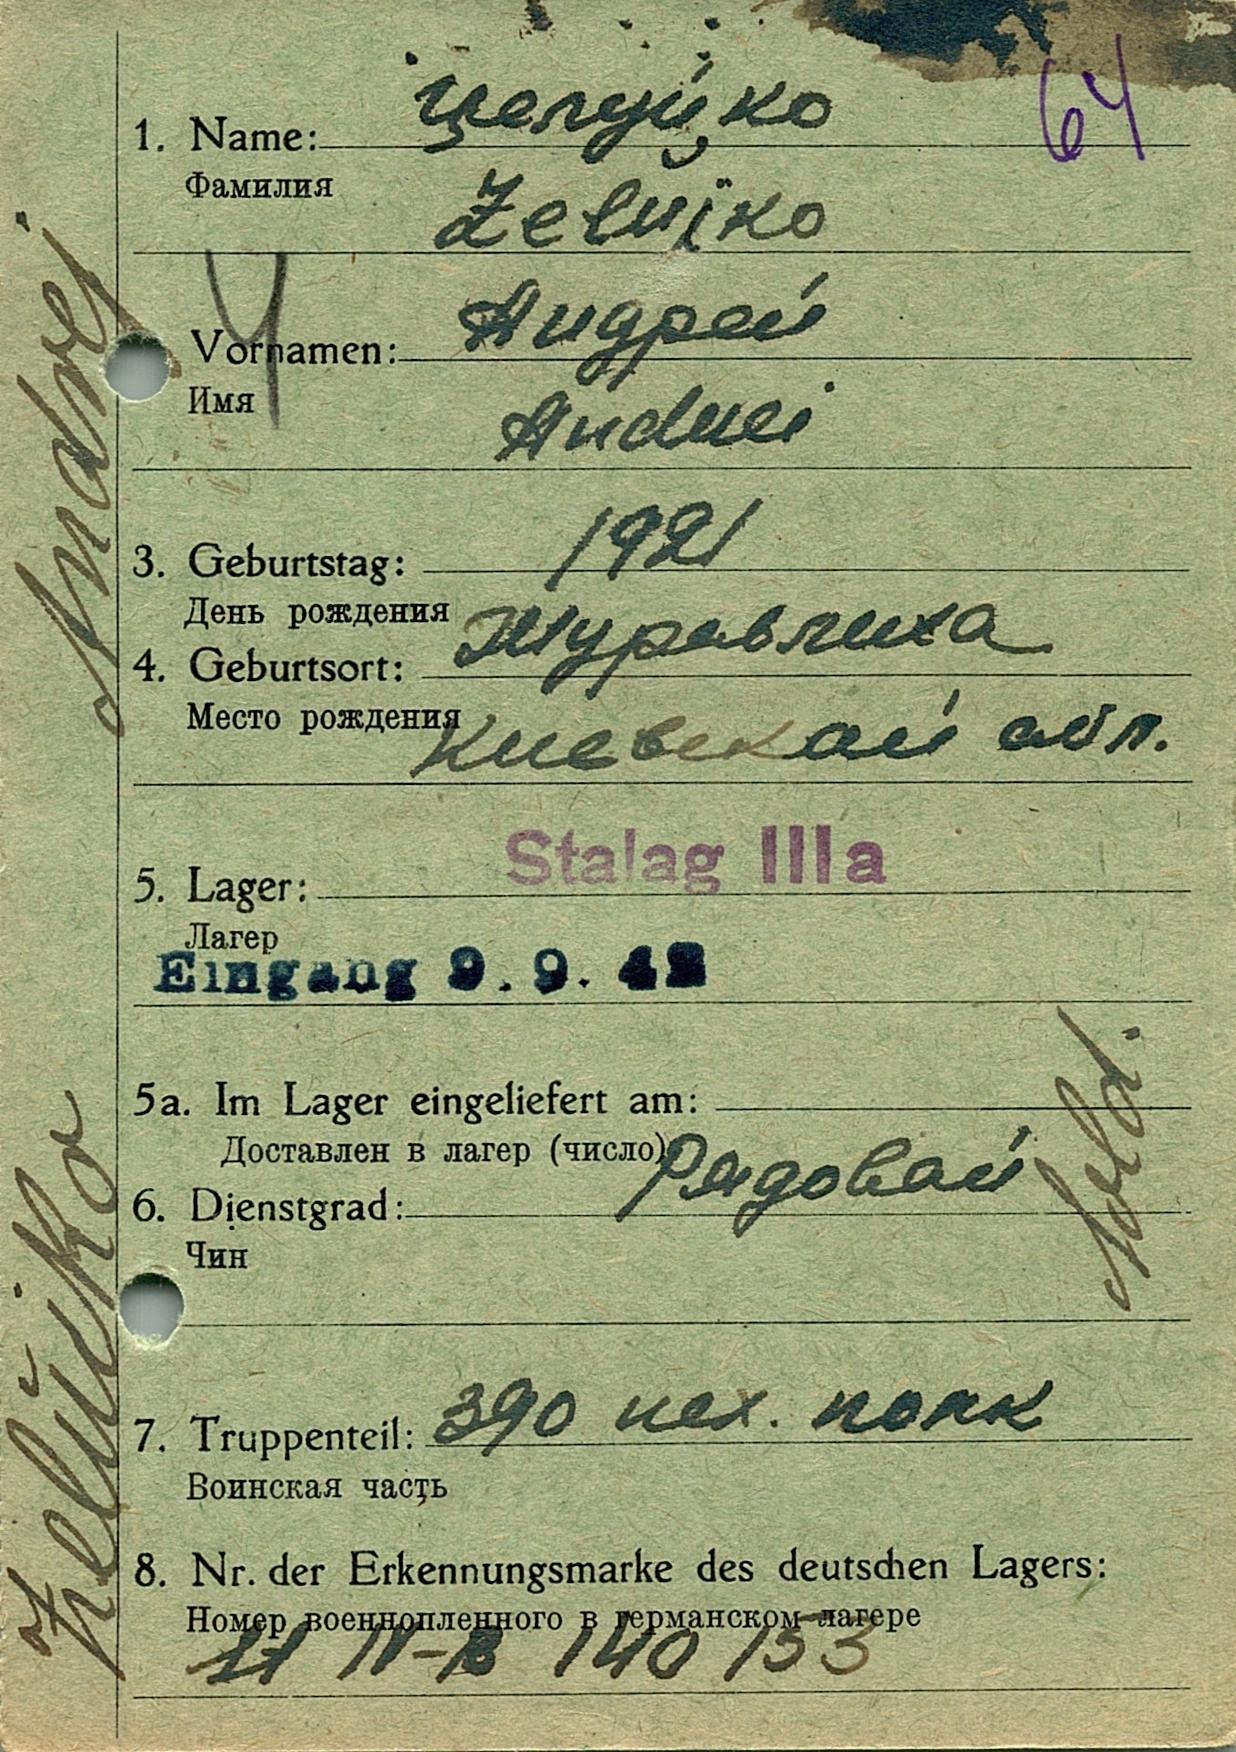 64
1. Name: Целуйко
Фамилия
Želuiko
Vornamen: Андрей
Имя
Andrei
3. Geburtstag: 1921
День рождения
4. Geburtsort: Журавлиха
Место рождения Киевской обл.
5. Lager: Stalag IIIa
Лагер
Eingang 9.9.42
5a. Im Lager eingeliefert am:
Доставлен в лагер (число)
6. Dienstgrad: Рядовай
Чин
Sold.
7. Truppenteil: 390 пех. полк
Воинская часть
8. Nr. der Erkennungsmarke des deutschen Lagers:
Номер военнопленного в германском лагере
IV-B 140153
Želuiko Andrej